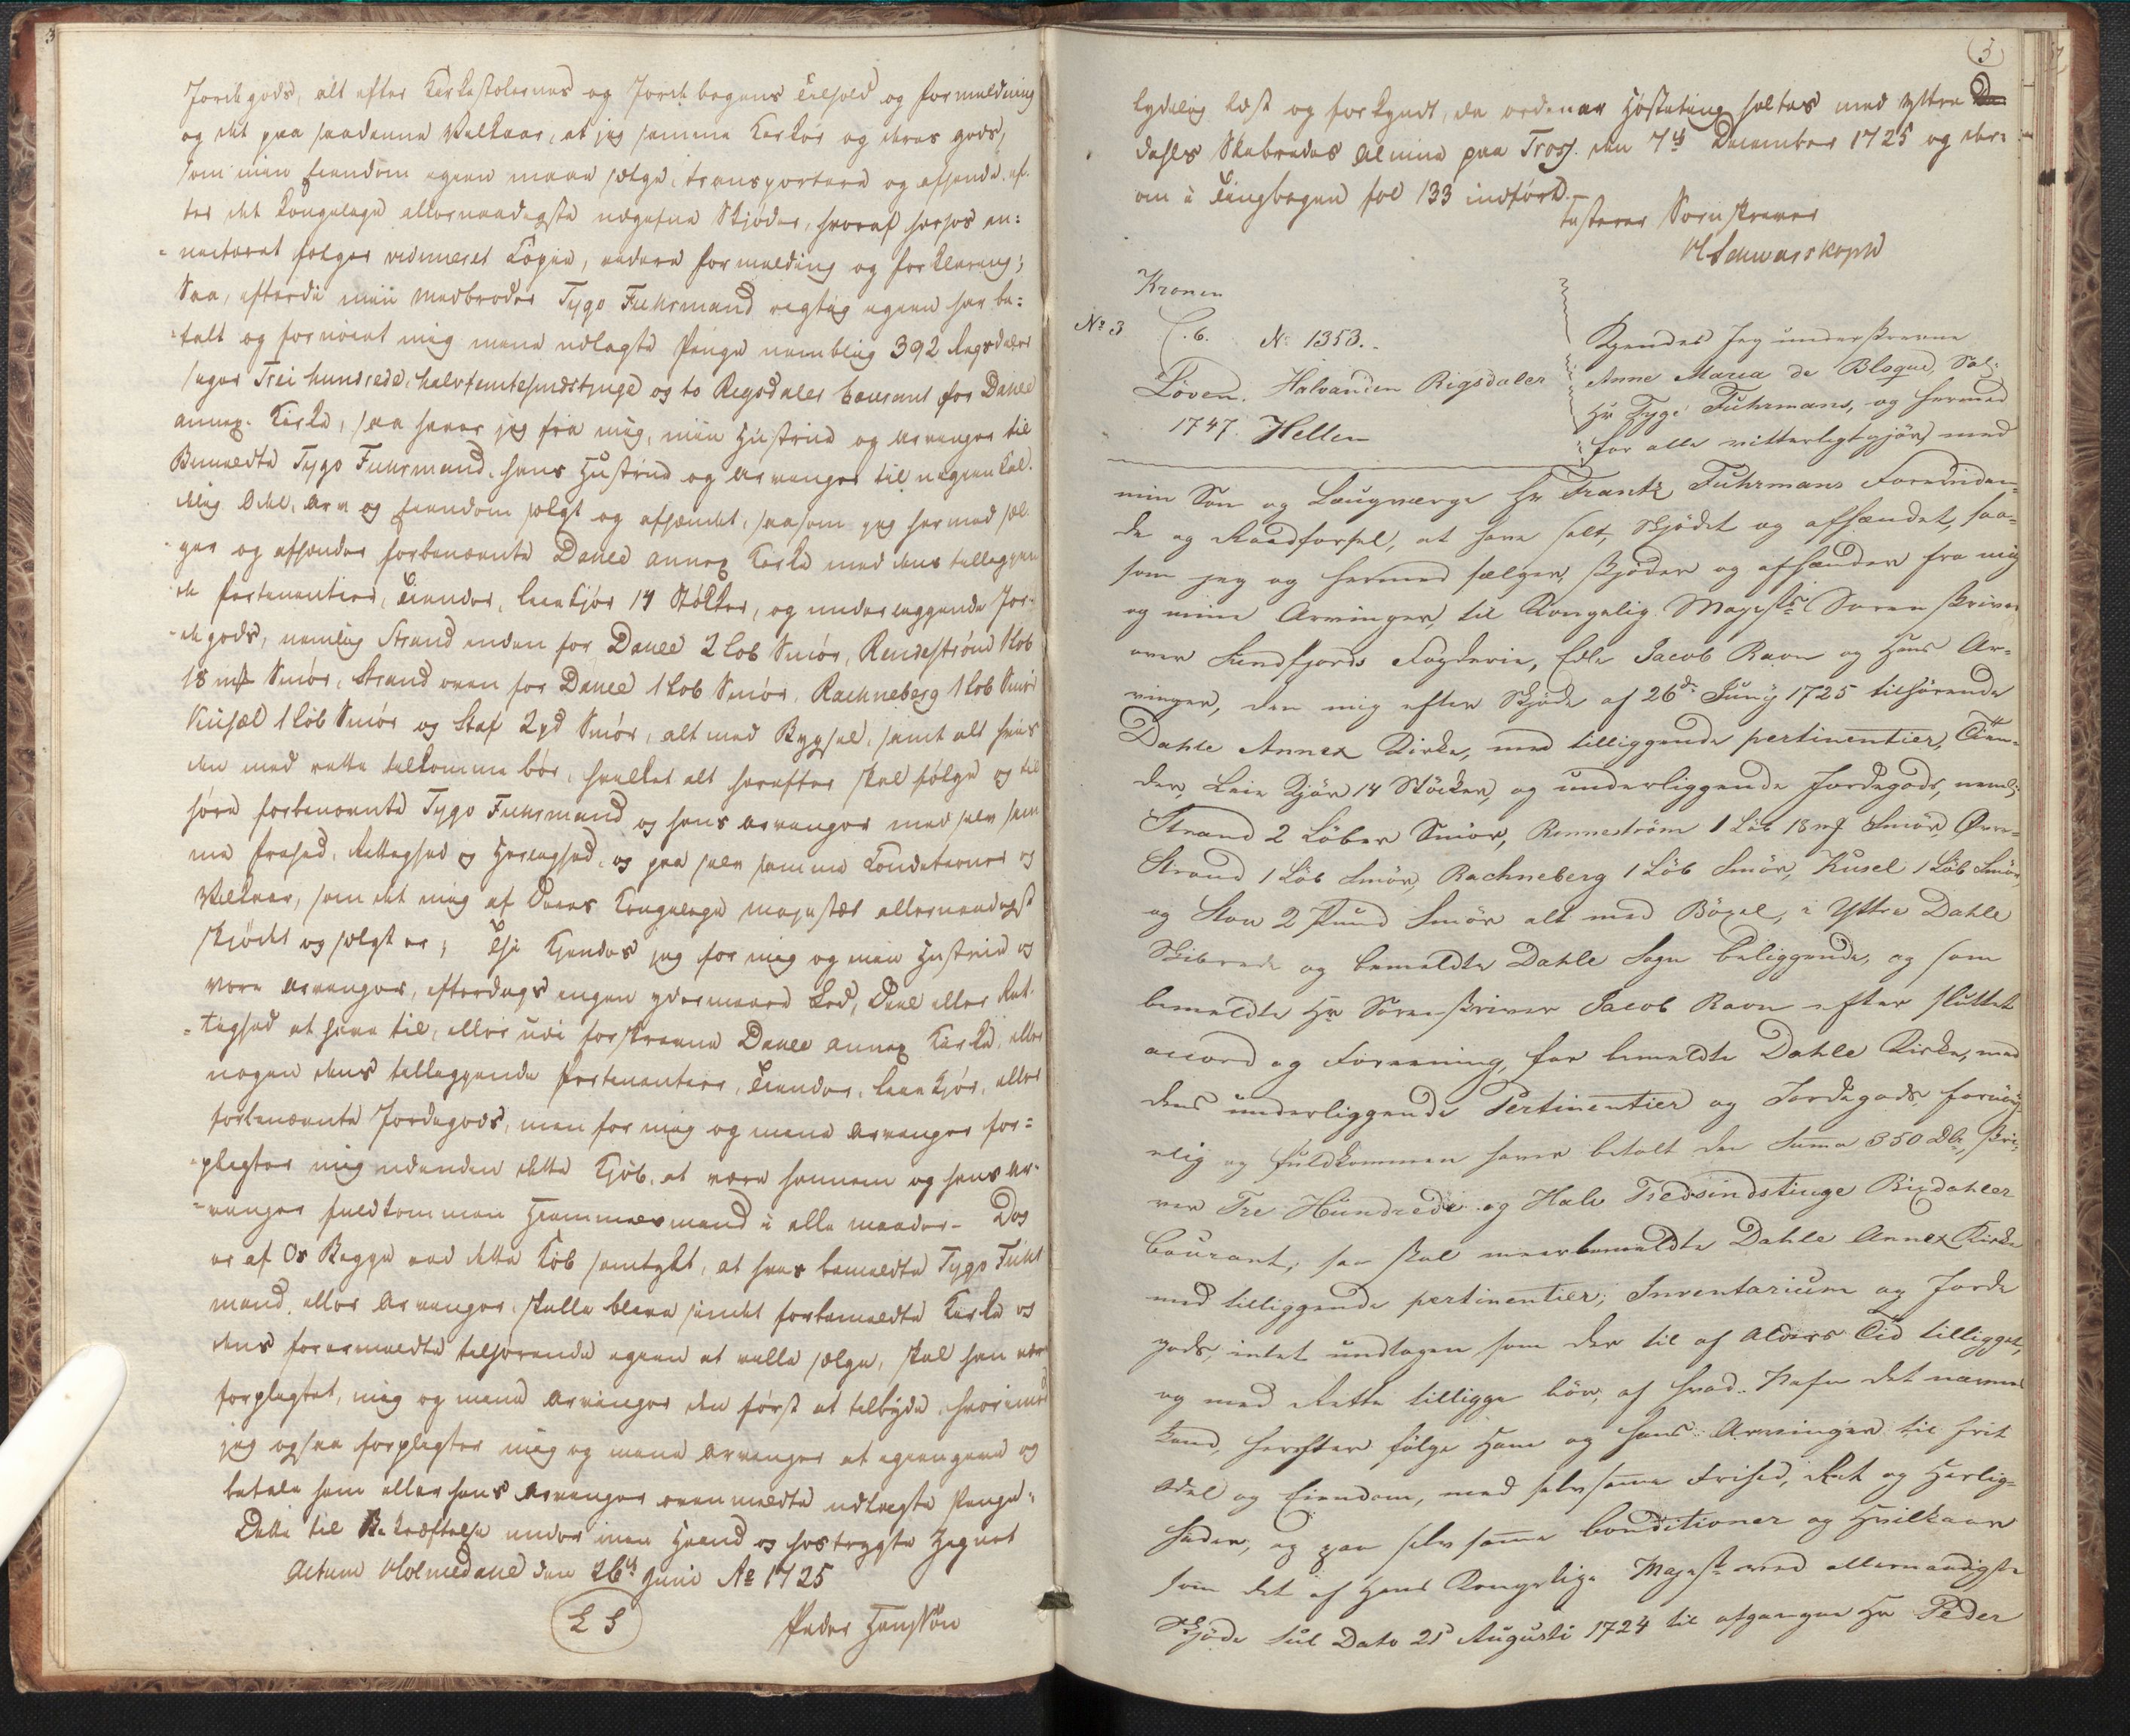 Jordegods, alt efter Kirkestolernes og Jordebogens Tilhold og formelding
og det paa saadanne Velkaar, at jeg samme Kirker og deres gods,
som min Eiendom igien maae selge, transportere og afhende, ef-
ter det Kongelige allernaadigste udgifne Skjøder, hvoraf herhos an-
noteret følger vidimeret Copie, videre formelding og forklaring;
Saa, efterdi min Medbroder Tygo Fuhrmand rigtig igien har be-
talt og fornøiet mig mine udlagte Penge nemblig 392 Rigsdaler
siger Trei hundrede, halvfemtesindstyge og to Rigsdaler Courant for Dahle
annex Kirke, saa haver jeg fra mig, min Hustrue og arvinger til
Bemeldte Tygo Fuhrmand, hans Hustrue og arvinger til
Odel, Arv og Eiendom solgt og afhændet, saasom jeg hermed sæl-
ger og afhender forbenævnte Dahle annex Kirke med dens tilliggen
de Pertinentier, Tiender, leiekjør 14 Støkker, og underliggende Jor-
degods, nemlig Strand neden for Dahle 2 Lob Smør, Rendestrønd 1 Lob
18 mrk Smør, Strand oven for Dahle 1 Lob Smør, Rachneberg 1 Lob Smør
Kusæl 1 Løb Smør og Staf 2 pd Smør, alt med Bygsel, samt alt hvis
den med rette tilkomme bør, hvilket alt herefter skal følge og til
høre forbenævnte Tygo Fuhrmand og hans arvinger med selv sam
me frihed, Rettighed og Herlighed, og paa selv samme Conditioner og
Velkaar, som det mig af Deres Kongelige majestæt allernaadigst
skjødet og solgt er; Thi Kjendes jeg for mig og min Hustrue og
vore arvinger, efterdags ingen ydermeere Lod, Deel eller Ret-
tighed at have til, eller udi forskrevne Dahle annex Kirke, eller
nogen dens tilliggende Pertinentier, Tiender, leiekjør, eller
forbenævnte Jordegods, men for mig og mine arvinger for-
pligter mig udinden dette Kjøb, at være hannem og hans Ar-
vinger fuldkommen Hiemmelsmand i alle maader- Dog
er af Os Begge ved dette Køb samtykt, at hvis bemeldte Tygo Fuhr
mand, eller arvinger skulle blive sindet forbemeldte Kirke og
dens foromeldte tilhørende igien at ville sælge, skal han være
forpligtet, mig og mine arvinger den først at tilbyde, hvorimod
jeg ogsaa forpligter mig og mine arvinger at igiengive og
betale ham eller hans Arvinger ovenmeldte udlagte Penge.
Dette til Bekræftelse under min Haand og hostrygte Zignet
Actum Holmedahl den 26de Junii Ao 1725
L S
Peder Hanssøn
3
lydelig læst og forkyndt, da ordinair Høsteting holtes med yttre Da
dahls Skibredes Almue paa Tross. den 7de December 1725 og der-
om i Tingbogen fol 133 indført
Testerer Sornskriver
H Schwarskoph
No 3
Kronen
C. 6. No 1353.
Løven. Halvanden Rigsdaler
1747. Hellen
Kjendes Jeg underskrevne
Anne Maria de Bloque, Sal:
Hr Tyge Fuhrmans, og hermed
for alle vitterligtgjør med
min Søn og Laugværge Hr Frantz Fuhrmans Foreviden-
de og Raadførsel, at have solt, Skjødet og afhændet, saa-
som jeg og hermed sælger, skjøder og afhænder fra mig
og mine Arvinger, til Kongelig Majests Sorenskriver
over Sundfjords Fogderie, Edle Jacob Ravn og Hans Ar-
vinger, den mig efter Skjøde af 26de Junij 1725 tilhørende
Dahle Annex Kirke, med tilliggende pertinentier, Tien-
der, Leie Kjør 14 Stöcker, og underliggende Jordegods, neml:
Strand 2 Löber Smör, Renneström 1 Löb 18 mrk Smör, Övre-
Strand 1 Löb Smör, Rachneberg 1 Löb Smör, Kusel 1 Löb Smör,
og Stav 2 Pund Smör alt med Böxel, i Yttre Dahle
Skibrede og bemeldte Dahle Sogn beliggende, og som
bemeldte Hr Sorenskriver Jacob Ravn efter sluttet
accord og Foreening, for bemeldte Dahle Kirke, med
dens underliggende Pertinentier og Jordegods fornöy-
elig og fuldkommen haver betalt den Suma 350 Dlr, skri-
ver Tre Hundrede og Halv Tredsindstiuge Rixdahler
Courant; saa skal meerbemeldte Dahle Annex Kirke
med tilliggende pertinentier, Inventarium og Jorde
gods, intet undtagen som der til af Alders Tid tilligget,
og med Rette tilligge bör, af hvad Nafn det nævnes
kand, herefter fölge Ham og hans Arvinger til frit
Odel og Eiendom, med selvsame Frihed, Ret og Herlig-
heder, og paa selv same Conditioner og Hvilkaar
som det af Hans Kongelige Majestt ved allernaadigste
Skjöde sub Dato 21de Augusti 1724 til afgangne Hr Peder